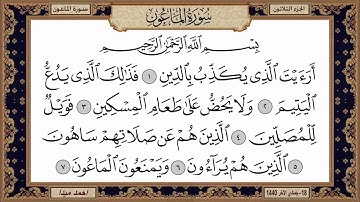 الجزء الثلاثون
سورة الماعون
سُورَةُ المَاعُونِ
بِسْمِ اللَّهِ الرَّحْمَٰنِ الرَّحِيمِ
أَرَءَيْتَ الَّذِي يُكَذِّبُ بِالدِّينِ ١ فَذَٰلِكَ الَّذِي يَدُعُّ
الْيَتِيمَ ٢ وَلَا يَحُضُّ عَلَىٰ طَعَامِ الْمِسْكِينِ ٣ فَوَيْلٌ
لِّلْمُصَلِّينَ ٤ الَّذِينَ هُمْ عَن صَلَاتِهِمْ سَاهُونَ
٥ الَّذِينَ هُمْ يُرَاءُونَ ٦ وَيَمْنَعُونَ الْمَاعُونَ ٧
18- جمادى الآخر 1440
أحمد